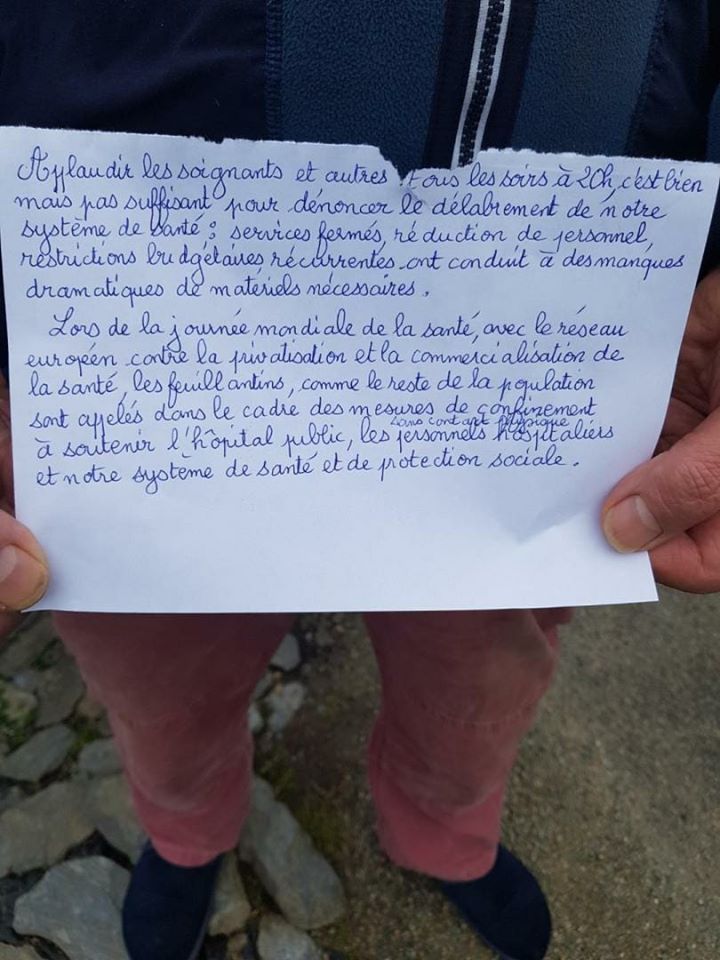 Applaudir les soignants et autres tous les soirs à 20h, c'est bien
mais pas suffisant pour dénoncer le délabrement de notre
système de santé : services fermés, réduction de personnel,
restrictions budgétaires récurrentes ont conduit à des manques
dramatiques de matériels nécessaires.
Lors de la journée mondiale de la santé, avec le réseau
européen contre la privatisation et la commercialisation de
la santé, les feuillantins, comme le reste de la population
sont appelés dans le cadre des mesures de confinement
sans contact physique
à soutenir l'hôpital public, les personnels hospitaliers
et notre système de santé et de protection sociale.